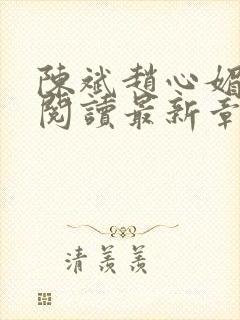 陳斌趙心媚
閱讀最新章
清羨羨